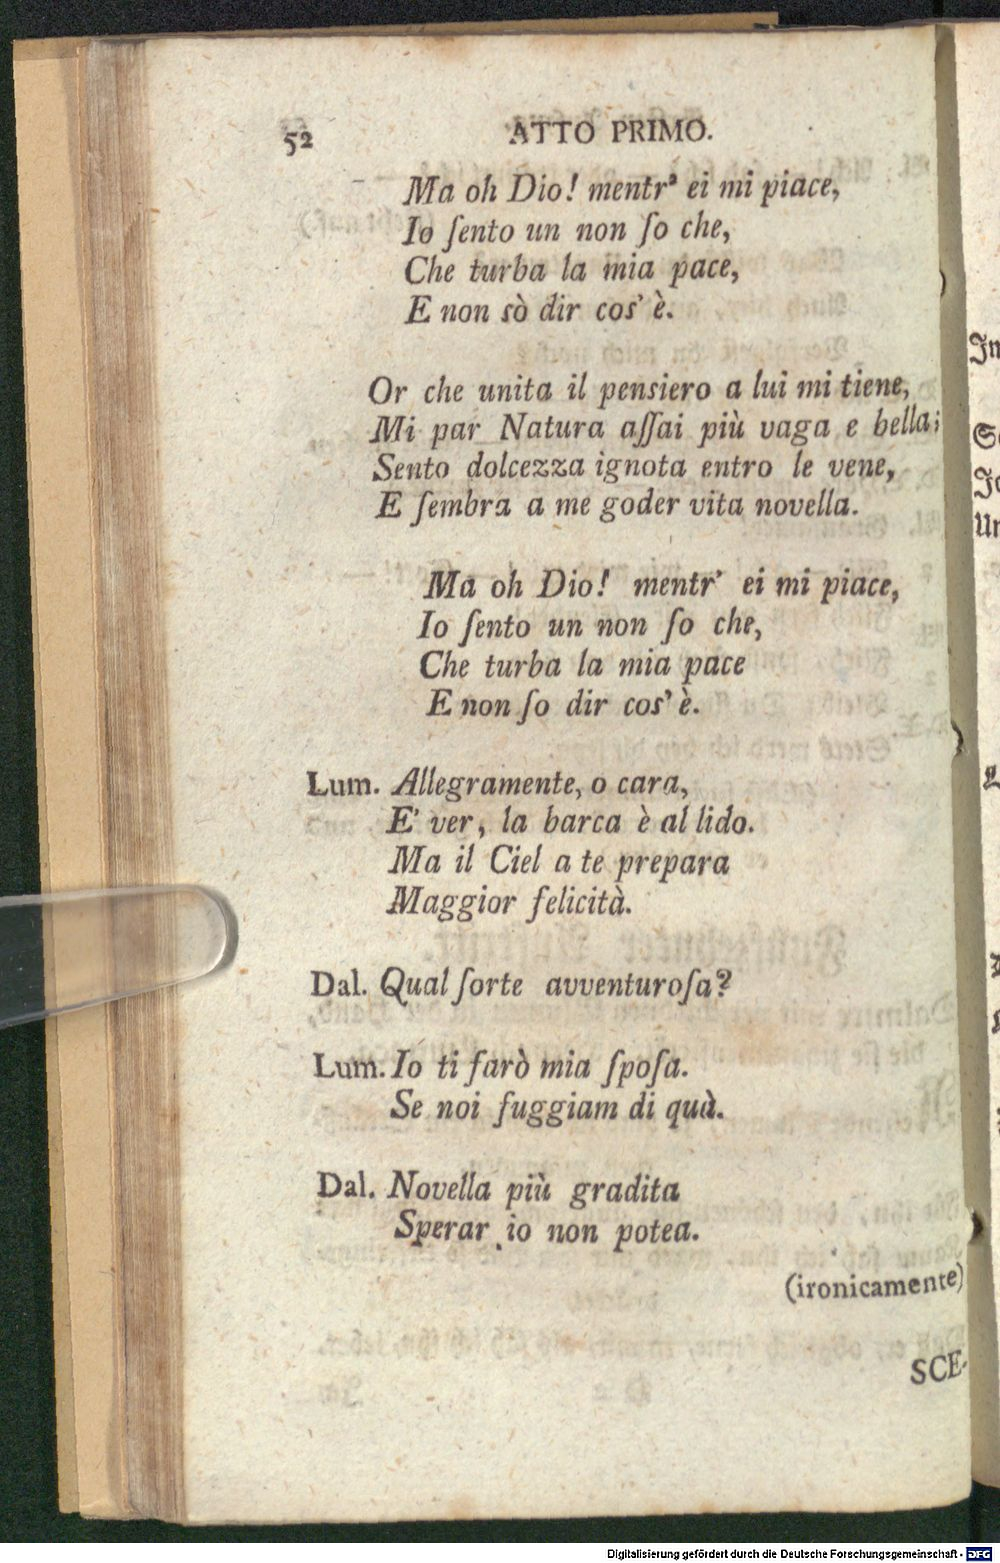 52 ATTO PRIMO.
Ma oh Dio! mentr' ei mi piace,
Io ſento un non ſo che,
Che turba la mia pace,
E non sò dir cos' è.
Or che unita il pensiero a lui mi tiene,
Mi par Natura aſſai più vaga e bella;
Sento dolcezza ignota entro le vene,
E ſembra a me goder vita novella.
Ma oh Dio! mentr' ei mi piace,
Io ſento un non ſo che,
Che turba la mia pace
E non ſo dir cos' è.
Lum. Allegramente, o cara,
E' ver, la barca è al lido.
Ma il Ciel a te prepara
Maggior felicità.
Dal. Qual ſorte avventuroſa?
Lum. Io ti farò mia ſpoſa.
Se noi fuggiam di quà.
Dal. Novella più gradita
Sperar io non potea.
(ironicamente)
SCE-
Digitalisierung gefördert durch die Deutsche Forschungsgemeinschaft - DFG